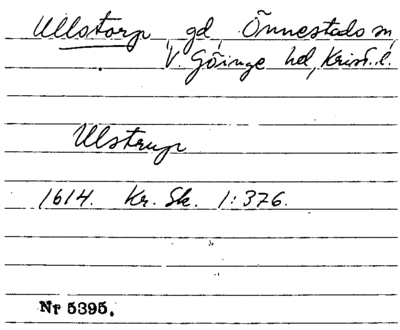 Ullstorp gd, Önnestads sn,
V. Göinge hd, Krist. l.
Ulstrup
1614. Kr. Sk. 1:376.
Nr 5395.